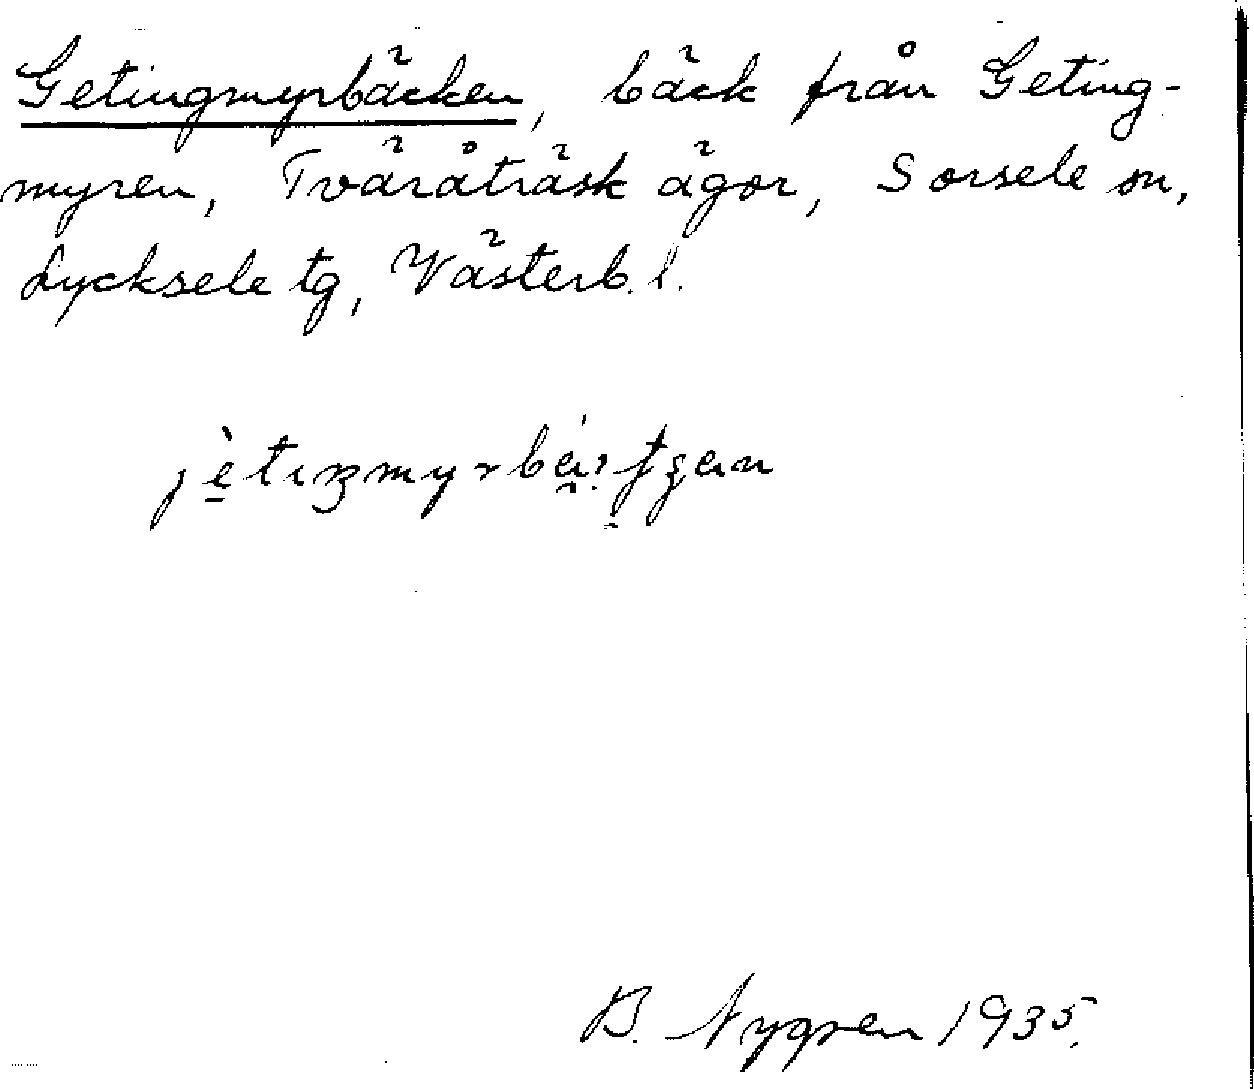 Getingmyrbäcken, bäck från Geting-
myren, Tväråträsk ägor, Sorsele sn,
Lycksele tg, Västerb. l.
B. Nygren 1935.